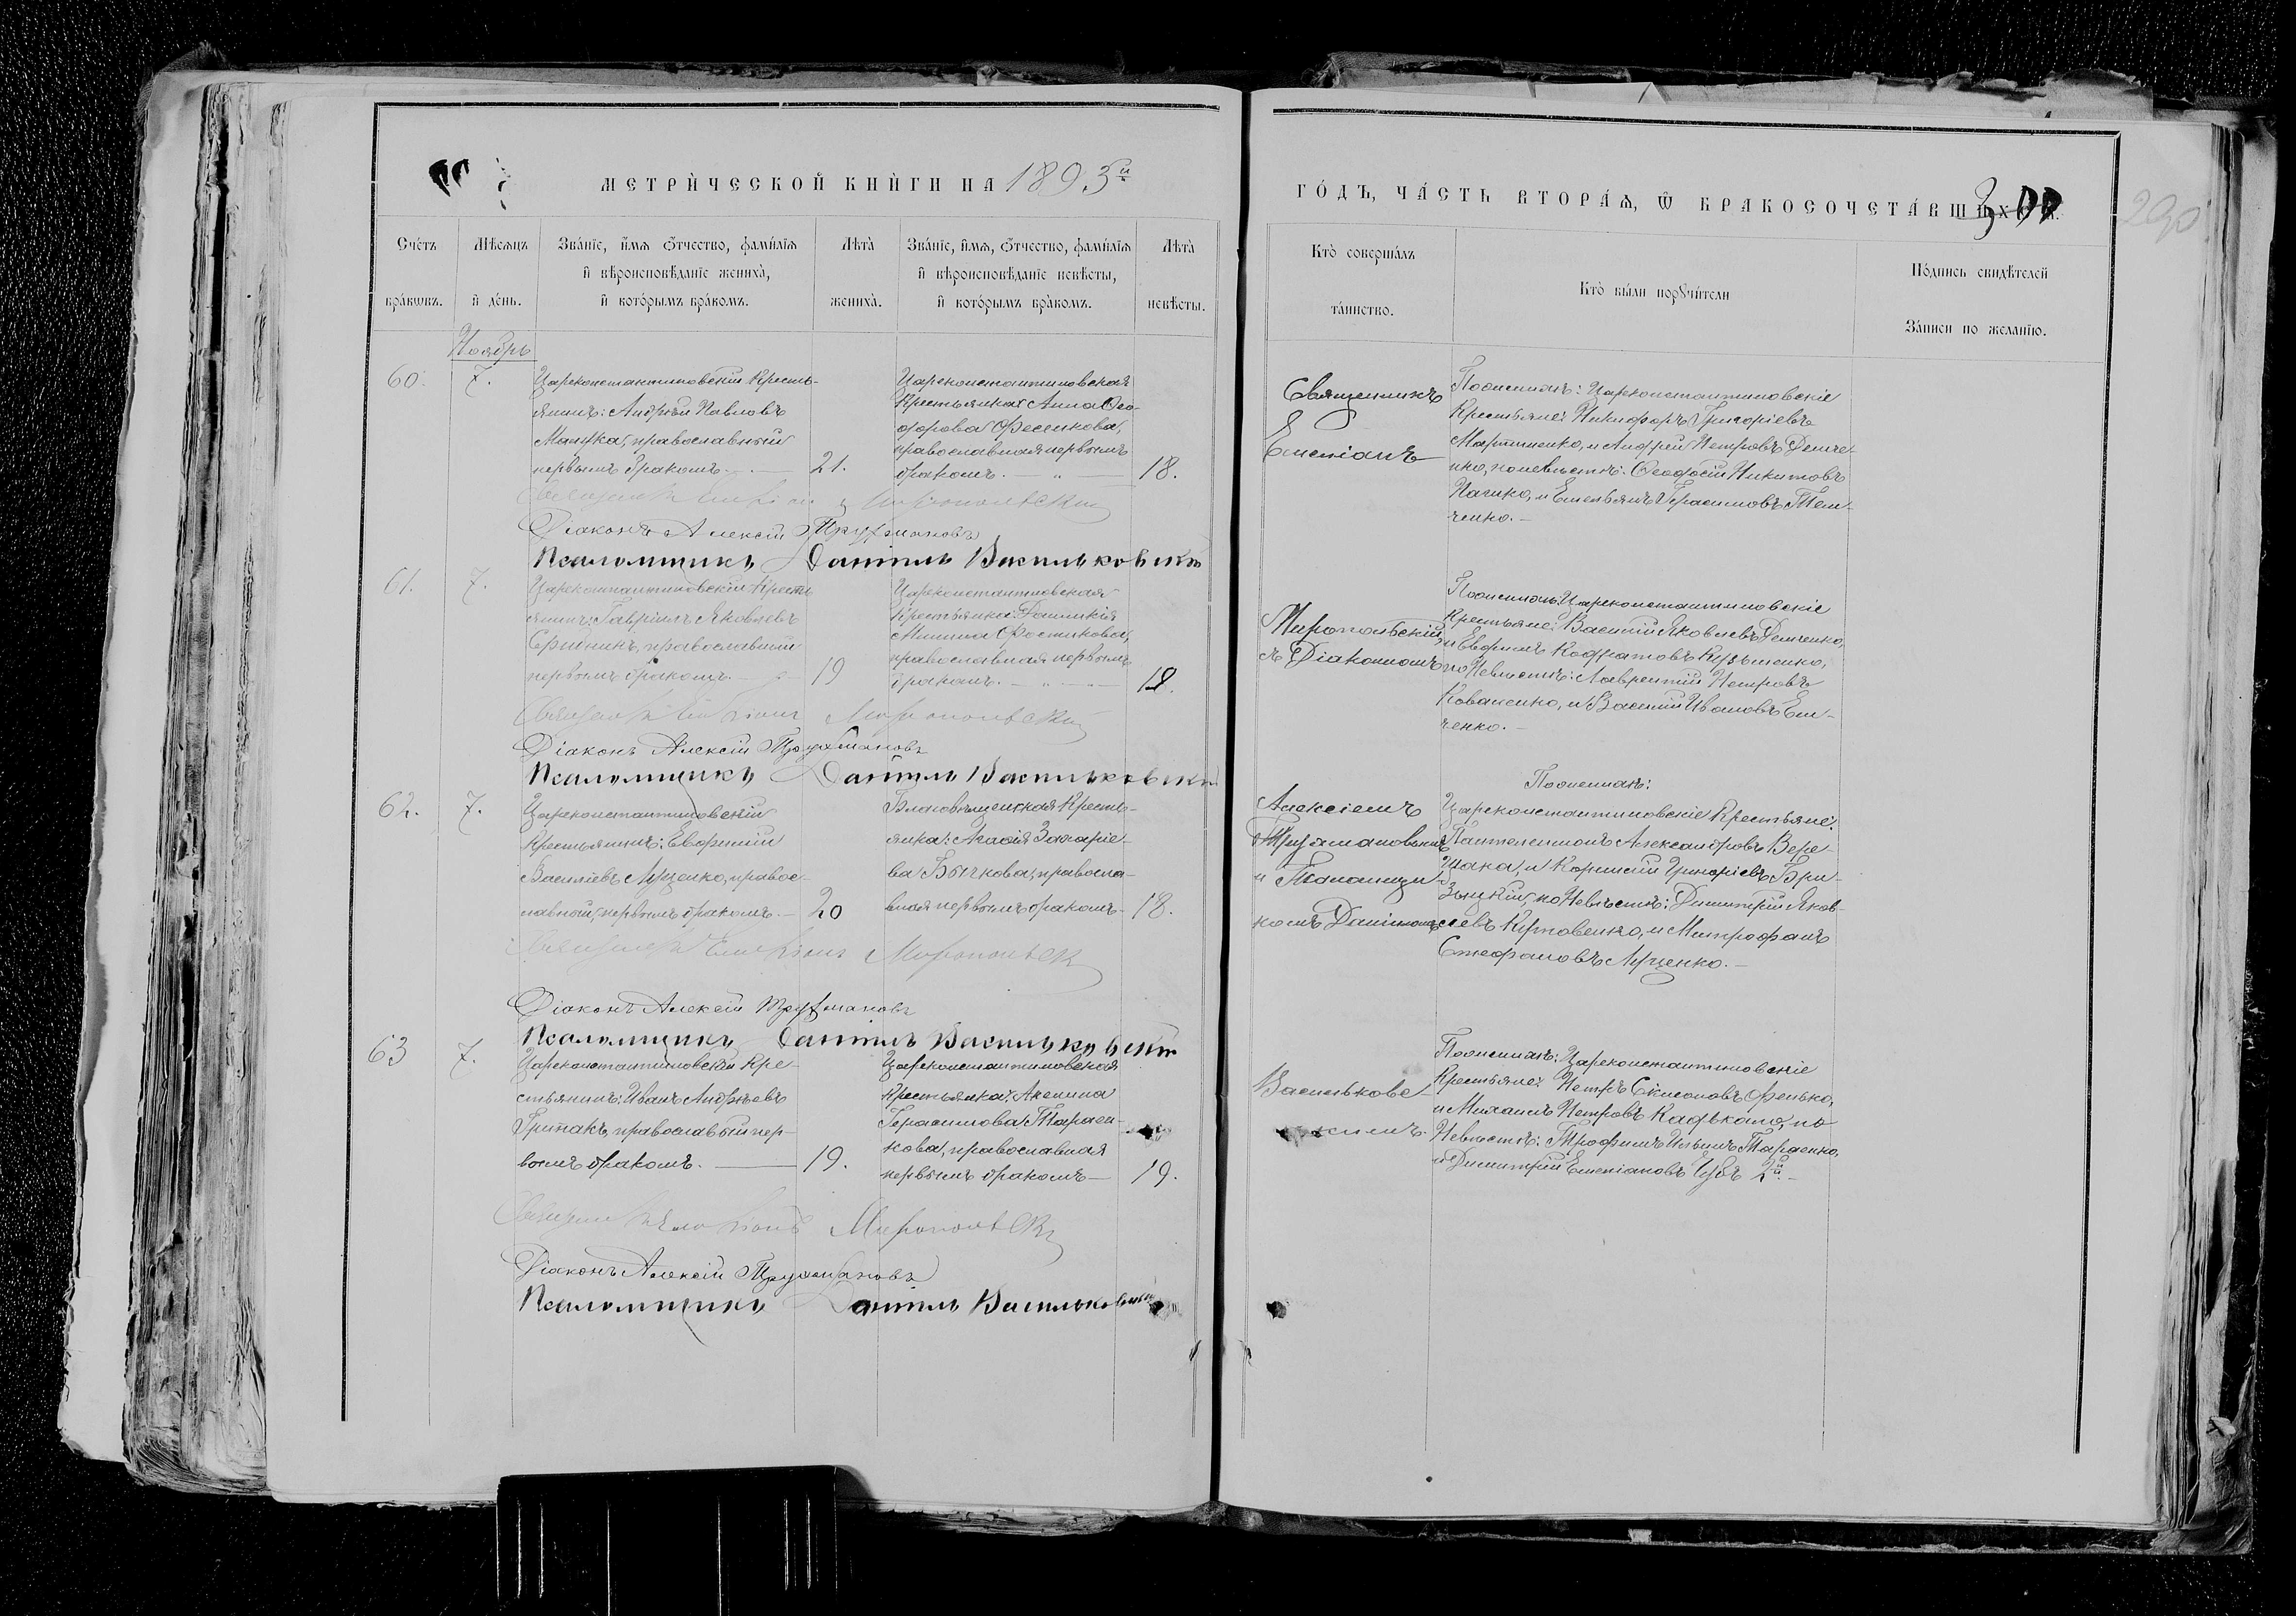 МЕТРИ́ЧЕСКОЙ КНИ́ГИ НА 1893й
ГО́ДЪ, ЧА́СТЬ ВТОРА́Ѧ, Ѽ БРАКОСОЧЕТА́ВШИХСѦ.
290
Сче́тъ бра́кѡвъ.
Мѣ́сѧцъ и҆ де́нь.
Зва́нїе, и҆́мѧ ѻ҆́тчество, фами́лїѧ
и҆ вѣроисповѣ́данїе жениха̀,
и҆ кото́рымъ бра́комъ.
Лѣта̀ жениха̀.
Зва́нїе, и҆́мѧ, ѻ҆́тчество, фами́лїѧ
и҆ вѣроисповѣ́данїе невѣ́сты,
и҆ кото́рымъ бра́комъ.
Лѣта̀ невѣ́сты.
Кто̀ соверша́лъ та́инство.
Кто̀ бы́ли порꙋчи́тели
По́дпись свидѣ́телей
За́писи по жела́нїю.
Ноябрь
60.
7.
Цареконстантиновскій кресть-
янинъ: Андрей Павловъ
православный
первымъ бракомъ.
21.
Цареконстантиновская
Крестьянка: Анна Ѳео-
дорова Фесенкова,
православная первымъ
бракомъ.
18.
Священникъ
Емеліанъ
По женихѣ: Цареконстантиновскіе
Крестьяне: Никифоръ Григоріевъ
Мартыненко, и Андрей Петровъ Демче-
нко, по невѣстѣ: Ѳеодосій Никитовъ
и Емельянъ Герасимовъ Тем-
ченко.
Священникъ Емеліанъ Миропольскій
Діаконъ Алексій Трухмановъ
Псаломщикъ Даніилъ Васильковскій
61.
7.
Цареконстантиновскій Кресть
янинъ: Гавріилъ Яковлевъ
православный
первымъ бракомъ.
19
Цареконстантиновская
Крестьянка:
православная первымъ
бракомъ.
18.
Миропольскій,
съ Діакономъ
По женихѣ: Цареконстантиновскіе
Крестьяне: Василій Яковлевъ Демченко,
и Ефремъ Кодратовъ Кузьменко,
по Невѣстѣ: Лаврентій Петровъ
Коваленко, и Василій Ивановъ Ем-
ченко.
Священникъ Емеліанъ Миропольскій
Діаконъ Алексій Трухмановъ
Псаломщикъ Даніилъ Васильковскій
62.
7.
Цареконстантиновскій
Крестьянинъ: Евфимій
Василіевъ Луценко, правос-
лавный, первымъ бракомъ.
20
Благовѣщенская Кресть-
янка: Агафія Захаріе-
ва Бычкова, правосла-
вная первымъ бракомъ.
18.
Алексіемъ
Трухмановымъ
и Псаломщи-
комъ Даніиломъ
По женихѣ:
Цареконстантиновскіе Крестьяне:
Пантелеимонъ Александровъ Вере-
щака, и Корнилій Григоріевъ Бри-
зицкій, по Невѣстѣ: Димитрій Яков-
левъ и Митрофанъ
Стефановъ Луценко.
Священникъ Емеліанъ Миропольскій
Діаконъ Алексій Трухмановъ
Псаломщикъ Даніилъ Васильковскій
63
7.
Цареконстантиновскій Кре-
стьянинъ: Иванъ Андреевъ
Грипакъ, православный пер-
вымъ бракомъ.
19.
Цареконстантиновская
Крестьянка: Акилина
Герасимова Тарасен-
кова, православная
первымъ бракомъ
19.
Васильковс-
кимъ.
По женихѣ: Цареконстантиновскіе
Крестьяне: Петръ Фенько,
и Михаилъ Петровъ по
Невѣстѣ: Трофимъ Ильинъ Тарасенко,
и Димитрій Емеліановъ 2й.
Священникъ Емеліанъ Миропольскій
Діаконъ Алексій Трухмановъ
Псаломщикъ Даніилъ Васильковскій